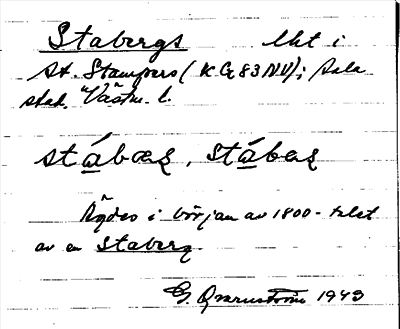 Stabergs lht i
St. Stampers (K Ce 83 NV); Sala
stad. Västm. l.
stábæʂ, stábaʂ
Ägdes i början av 1800-talet
av en Staberg.
G. Qvarnström 1943